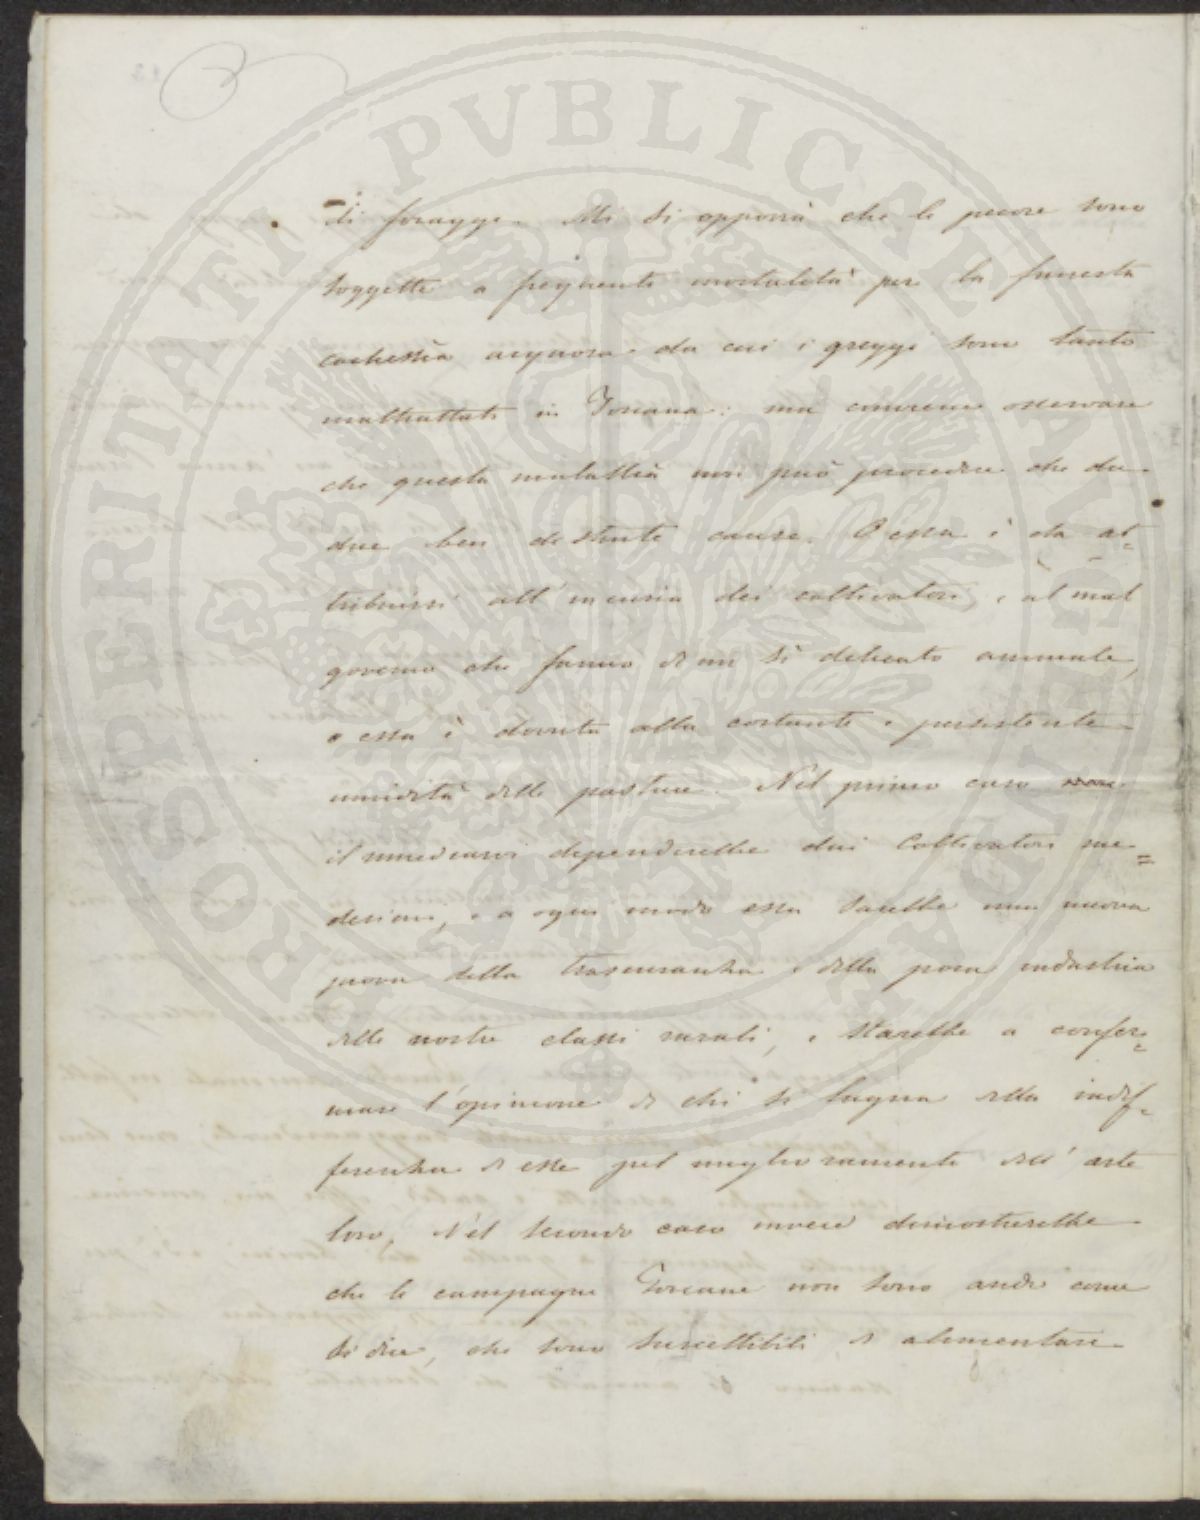 di foragge. Mi si opporrà che le pecore sono
soggette a frequente mortalità per la funesta
cachessia acquosa da cui i greggi sono tanto
maltrattati in Toscana: ma conviene osservare
che questa malattia non può procedere che da
due ben distinte cause. O essa è da at=
tribuirsi all'incuria dei coltivatori, e al mal
governo che fanno di un sì delicato animale,
o essa è dovuta alla costante e persistente
umidità delle pasture. Nel primo caso
il rimediarvi dipenderebbe dai Coltivatori me=
desimi, e a ogni modo essa sarebbe una nuova
prova della trascuranza e della poca industria
delle nostre classi rurali, e starebbe a confer=
mare l'opinione di chi si lagna della indif=
ferenza di esse pel miglioramento dell'arte
loro. Nel secondo caso invece dimostrerebbe
che le campagne Toscane non sono aride come
si dice, che sono suscettibili di alimentare
PROSPERITATI PVBLICAE AVGENDAE